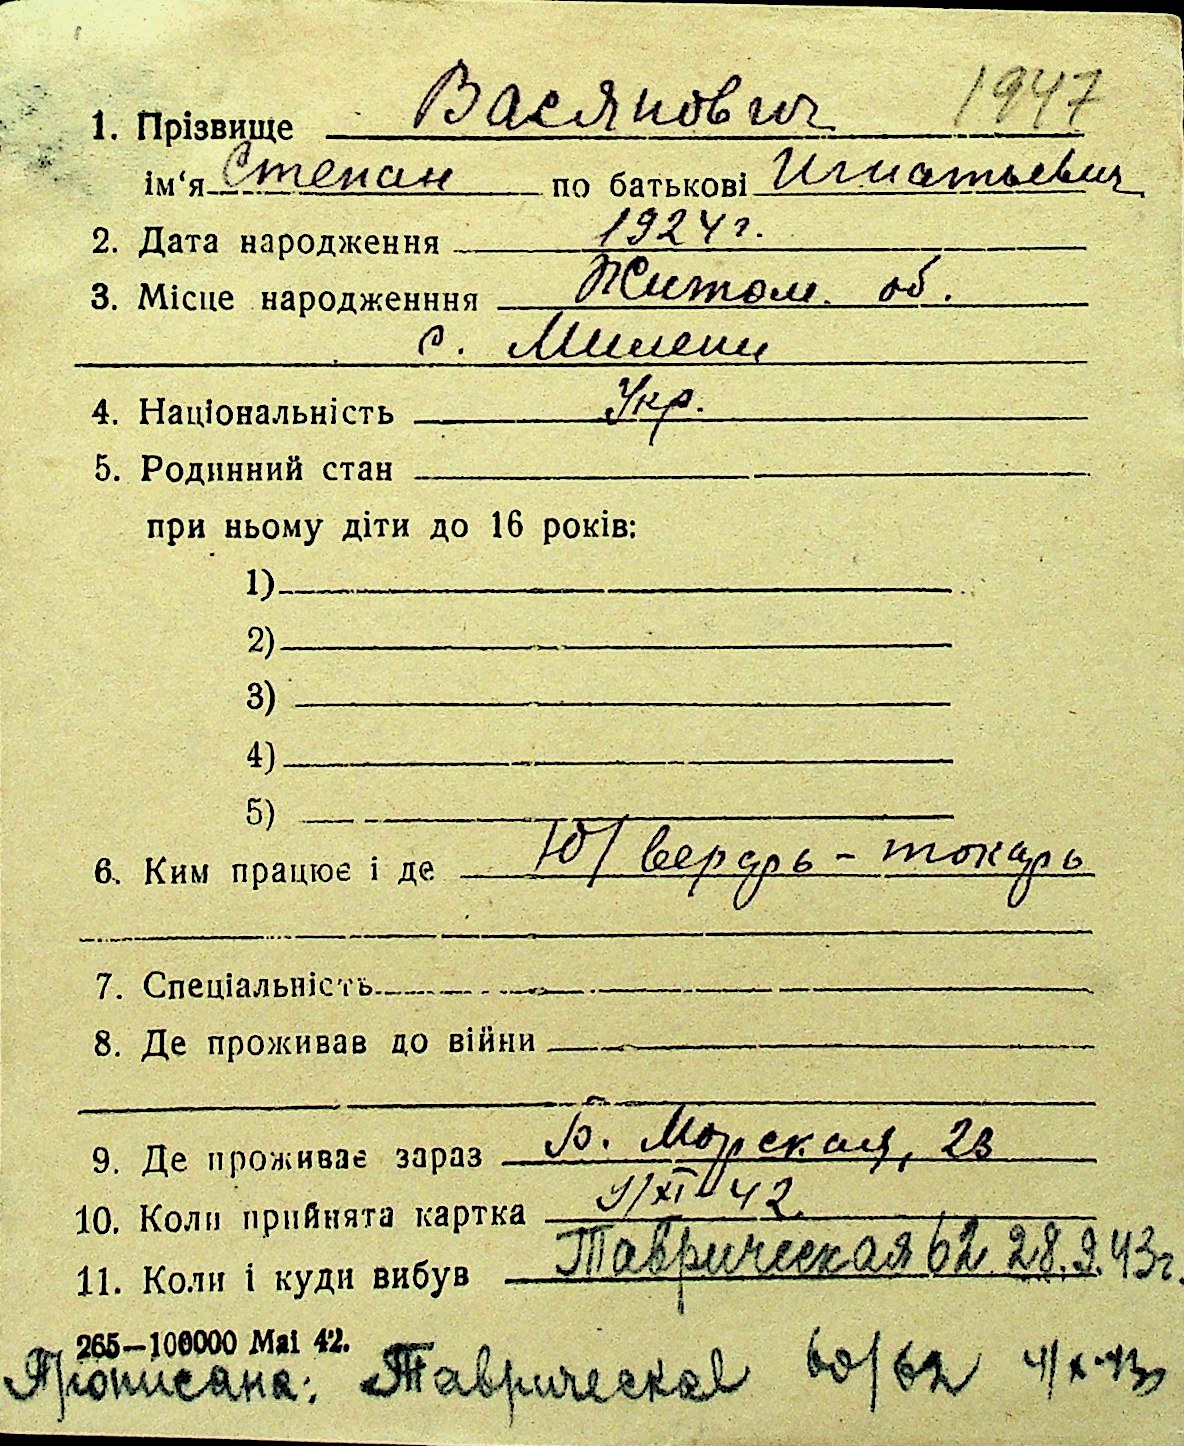 1. Прізвище Васянович 1947
ім'я Степан по батькові Игнатьевич
2. Дата народження 1924 г.
3. Місце народженння Житом. об.
с. Милени
4. Національність Укр.
5. Родинний стан
при ньому діти до 16 років:
1)
2)
3)
4)
5)
6. Ким працює і де верфь - токарь
7. Спеціальність
8. Де проживав до війни
9. Де проживає зараз Б. Морская, 23
10. Коли прийнята картка XI-42
11. Коли і куди вибув Таврическая 62 28.9.43г.
265—100000 Mai 42.
Прописана: Таврическая 60/62